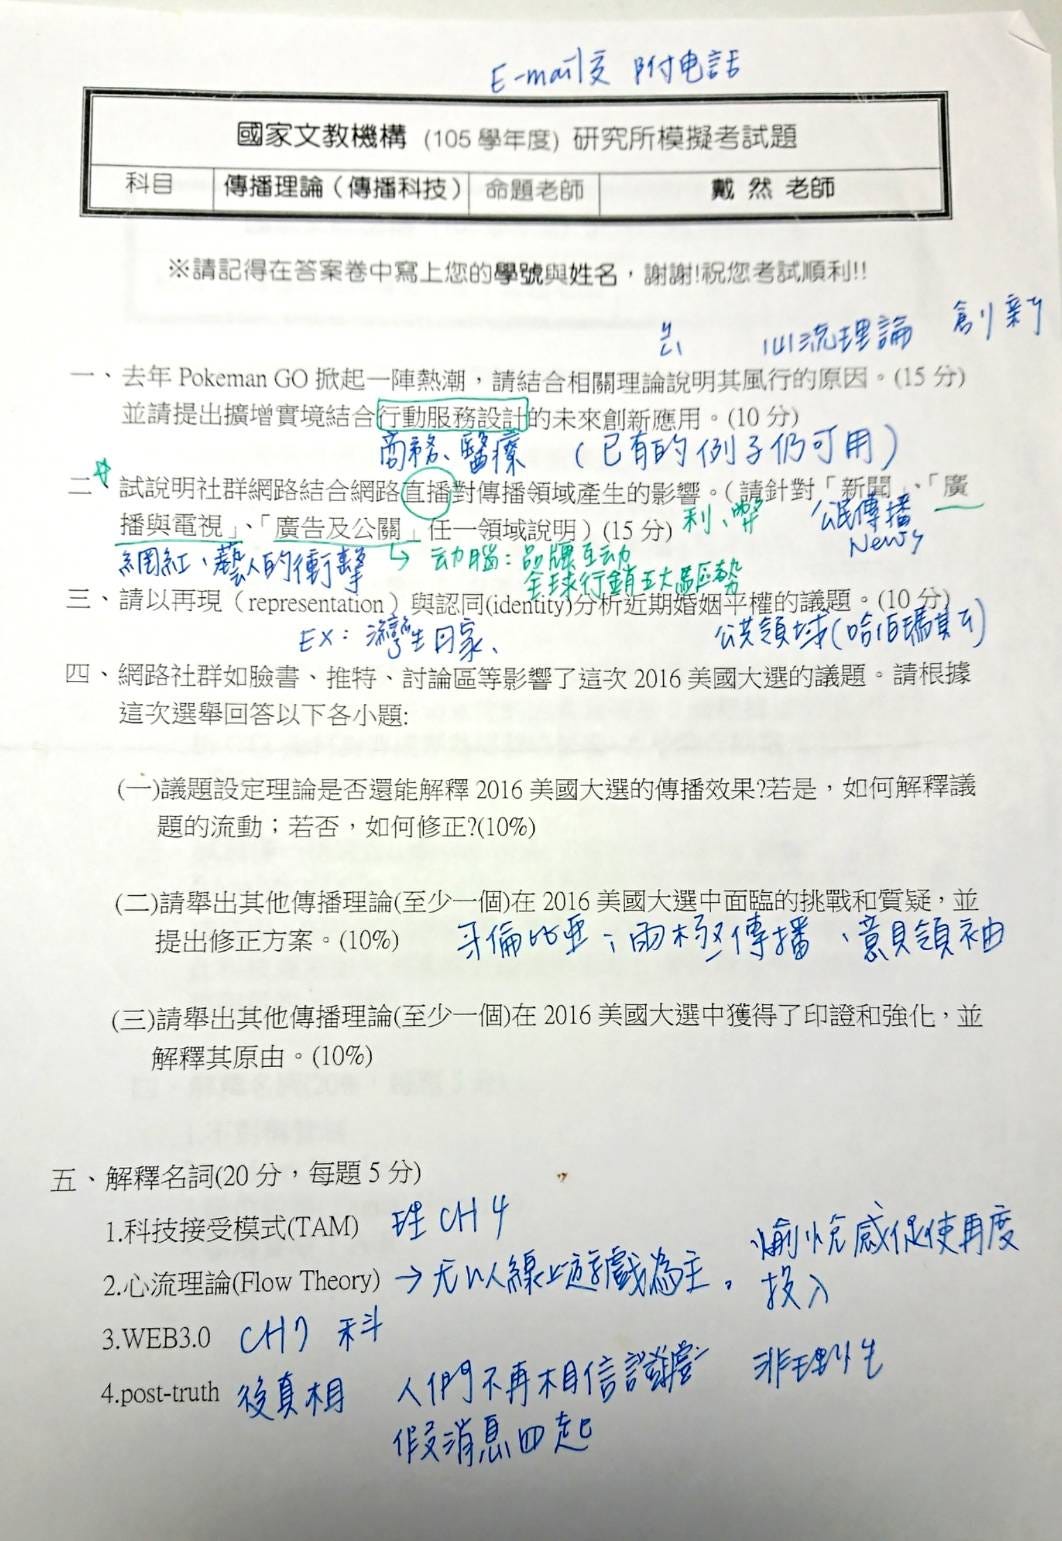 E-mail交 附电話
國家文教機構 (105 學年度) 研究所模擬考試題
科目 傳播理論（傳播科技） 命題老師 戴 然 老師
※請記得在答案卷中寫上您的學號與姓名，謝謝!祝您考試順利!!
心流理論 創新
一、去年 Pokeman GO 掀起一陣熱潮，請結合相關理論說明其風行的原因。(15 分)
並請提出擴增實境結合行動服務設計的未來創新應用。(10 分)
商務、醫療 （已有的例子仍可用）
二、試說明社群網路結合網路直播對傳播領域產生的影響。(請針對「新聞」、「廣
播與電視」、「廣告及公關」任一領域說明) (15 分) 利、弊 公民傳播
News
網紅、藝人的衝擊 動腦：品牌互动
全球行銷五大區勢
三、請以再現（representation）與認同(identity)分析近期婚姻平權的議題。(10 分)
EX：灣生回家、 公共領域(哈伯瑪斯)
四、網路社群如臉書、推特、討論區等影響了這次 2016 美國大選的議題。請根據
這次選舉回答以下各小題:
(一)議題設定理論是否還能解釋 2016 美國大選的傳播效果?若是，如何解釋議
題的流動；若否，如何修正?(10%)
(二)請舉出其他傳播理論(至少一個)在 2016 美國大選中面臨的挑戰和質疑，並
提出修正方案。(10%) 哥倫比亞；兩極傳播、意見領袖
(三)請舉出其他傳播理論(至少一個)在 2016 美國大選中獲得了印證和強化，並
解釋其原由。(10%)
五、解釋名詞(20 分，每題 5 分)
1.科技接受模式(TAM) 理 CH 4
2.心流理論(Flow Theory) → 尤以線上遊戲為主。 愉悅感促使再度
投入
3.WEB3.0 CH7 科
4.post-truth 後真相 人們不再相信證據 非理性
假消息四起